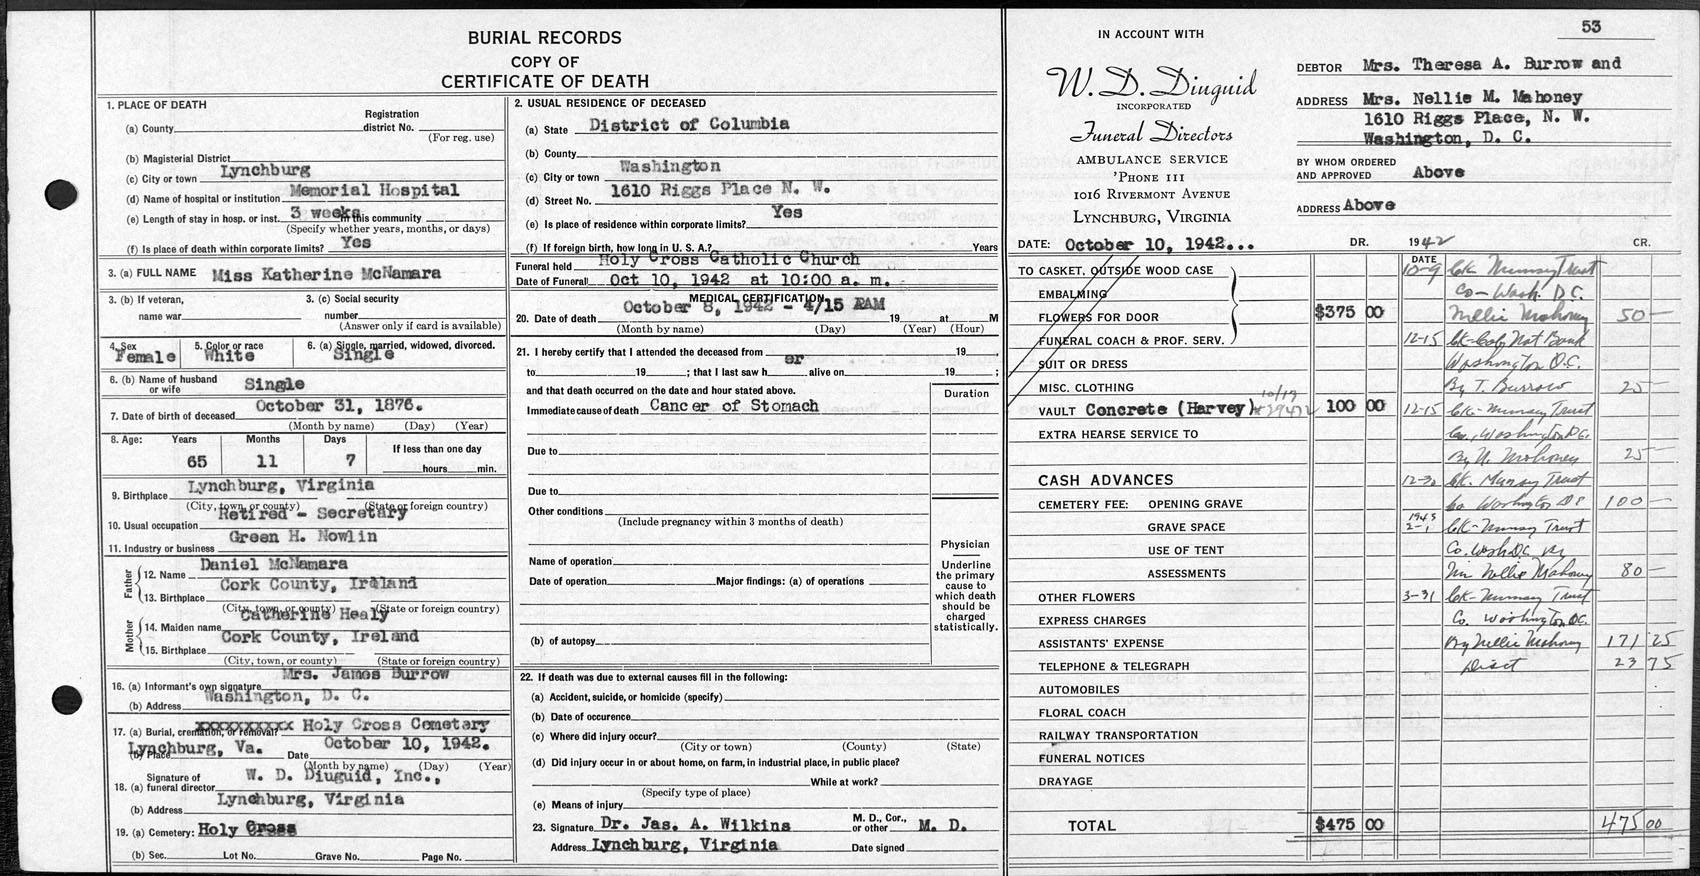 BURIAL RECORDS
COPY OF
CERTIFICATE OF DEATH
1. PLACE OF DEATH
Registration
(a) County district No.
(For reg. use)
(b) Magisterial District
(c) City or town Lynchburg
(d) Name of hospital or institution Memorial Hospital
(e) Length of stay in hosp. or inst. 3 weeks in this community
(Specify whether years, months, or days)
(f) Is place of death within corporate limits? Yes
3. (a) FULL NAME Miss Katherine McNamara
3. (b) If veteran, 3. (c) Social security
name war number
(Answer only if card is available)
4. Sex 5. Color or race 6. (a) Single, married, widowed, divorced.
Female White Single
6. (b) Name of husband or wife Single
7. Date of birth of deceased October 31, 1876.
(Month by name) (Day) (Year)
8. Age: Years Months Days If less than one day
65 11 7 hours min.
9. Birthplace Lynchburg, Virginia
(City, town, or county) (State or foreign country)
10. Usual occupation Retired - Secretary
11. Industry or business Green H. Nowlin
Father
12. Name Daniel McNamara
13. Birthplace Cork County, Ireland
(City, town, or county) (State or foreign country)
Mother
14. Maiden name Catherine Healy
15. Birthplace Cork County, Ireland
(City, town, or county) (State or foreign country)
16. (a) Informant's own signature Mrs. James Burrow
(b) Address Washington, D. C.
17. (a) Burial, cremation, or removal? xxxxxxxxxx Holy Cross Cemetary
(b) Place Lynchburg, Va. Date October 10, 1942.
(Month by name) (Day) (Year)
18. (a) Signature of funeral director W. D. Diuguid, Inc.,
(b) Address Lynchburg, Virginia
19. (a) Cemetery: Holy Cross
(b) Sec. Lot No. Grave No. Page No.
2. USUAL RESIDENCE OF DECEASED
(a) State District of Columbia
(b) County
(c) City or town Washington
(d) Street No. 1610 Riggs Place N. W.
(e) Is place of residence within corporate limits? Yes
(f) If foreign birth, how long in U. S. A.? Years
Funeral held Holy Cross Catholic Church
Date of Funeral Oct 10, 1942 at 10:00 a. m.
MEDICAL CERTIFICATION
20. Date of death October 8, 1942 - 4/15 AM 19 at M
(Month by name) (Day) (Year) (Hour)
21. I hereby certify that I attended the deceased from 19 ,
to 19 ; that I last saw h er alive on 19 ;
and that death occurred on the date and hour stated above.
Duration
Immediate cause of death Cancer of Stomach
Due to
Due to
Other conditions
(Include pregnancy within 3 months of death)
Name of operation
Date of operation Major findings: (a) of operations
(b) of autopsy
Physician
Underline
the primary
cause to
which death
should be
charged
statistically.
22. If death was due to external causes fill in the following:
(a) Accident, suicide, or homicide (specify)
(b) Date of occurence
(c) Where did injury occur?
(City or town) (County) (State)
(d) Did injury occur in or about home, on farm, in industrial place, in public place?
While at work?
(Specify type of place)
(e) Means of injury
23. Signature Dr. Jas. A. Wilkins M. D., Cor., or other M. D.
Address Lynchburg, Virginia Date signed
53
IN ACCOUNT WITH
W. D. Diuguid
INCORPORATED
Funeral Directors
AMBULANCE SERVICE
'PHONE 111
1016 RIVERMONT AVENUE
LYNCHBURG, VIRGINIA
DEBTOR Mrs. Theresa A. Burrow and
ADDRESS Mrs. Nellie M. Mahoney
1610 Riggs Place, N. W.
Washington, D. C.
BY WHOM ORDERED AND APPROVED Above
ADDRESS Above
DATE: October 10, 1942... DR. 1942 CR.
DATE
TO CASKET, OUTSIDE WOOD CASE
EMBALMING
FLOWERS FOR DOOR $375 00
FUNERAL COACH & PROF. SERV.
SUIT OR DRESS
MISC. CLOTHING
VAULT Concrete (Harvey) 10/19 100 00
EXTRA HEARSE SERVICE TO
CASH ADVANCES
CEMETERY FEE: OPENING GRAVE
GRAVE SPACE
USE OF TENT
ASSESSMENTS
OTHER FLOWERS
EXPRESS CHARGES
ASSISTANTS' EXPENSE
TELEPHONE & TELEGRAPH
AUTOMOBILES
FLORAL COACH
RAILWAY TRANSPORTATION
FUNERAL NOTICES
DRAYAGE
TOTAL $475 00
10-9 Ck Munsey Trust
Co - Wash. D.C.
Nellie Mahoney 50 —
12-15 Ck - Nat Bank
Washington D.C.
By T. Burrow 25 —
12-15 Ck - Munsey Trust
Co., Washington D.C.
By N. Mahoney 25 —
12-30 Ck. Munsey Trust
Co Washington DC 100 —
1943
2-1 Ck - Munsey Trust
Co. Wash D.C. By
Nellie Mahoney 80 —
3-31 Ck - Munsey Trust
Co. Washington, D.C.
By Nellie Mahoney 171 25
Disct 23 75
475 00